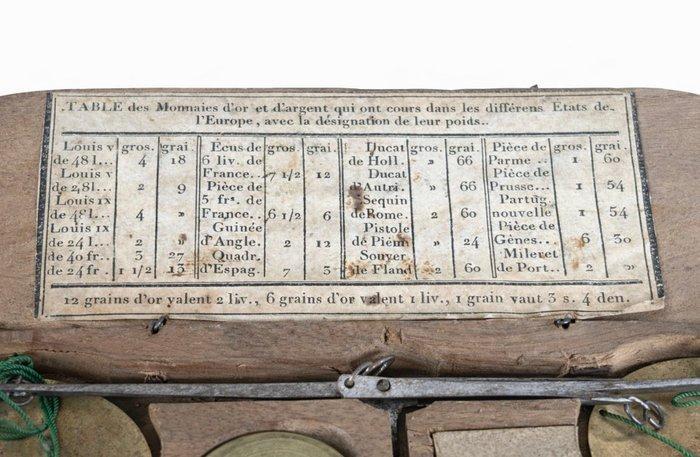 TABLE des Monnaies d'or et d'argent qui ont cours dans les différens Etats de
l'Europe, avec la désignation de leur poids..
Louis v gros. grai.
de 48 l... 4 18
Louis v
de 24 l... 2 9
Louis IX
de 48 l... 4 »
Louis IX
de 24 l.. 2 »
de 40 fr.. 3 27
de 24 fr. 1 1/2 13
Écus de gros. grai.
6 liv. de
France. . 7 1/2 12
Pièce de
5 frs. de
France. . 6 1/2 6
Guinée
d'Angle. 2 12
Quadr.
d'Espag. 7 3
Ducat gros. grai.
de Holl. » 66
Ducat
d'Autri. » 66
Sequin
de Rome. 2 60
Pistole
de Piém. » 24
Souver.
de Fland 2 60
Pièce de gros. grai.
Parme .. 1 60
Pièce de
Prusse... 1 54
Partug.
nouvelle 1 54
Pièce de
Gènes... 6 30
Mileret
de Port.. 2 »
12 grains d'or valent 2 liv., 6 grains d'or valent 1 liv., 1 grain vaut 3 s. 4 den.